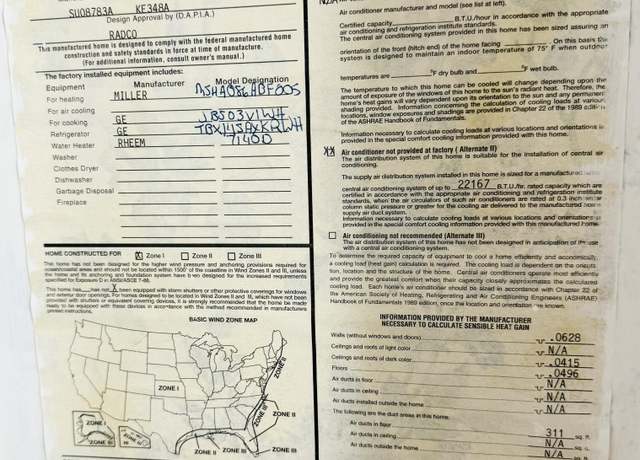 SU08783A KE348A
Design Approval by (D.A.P.I.A.)
RADCO
This manufactured home is designed to comply with the federal manufactured home
construction and safety standards in force at time of manufacture.
(For additional information, consult owner's manual.)
The factory installed equipment includes:
Equipment Manufacturer Model Designation
For heating MILLER
For air cooling
For cooking GE JBS03V1WH
Refrigerator GE
Water Heater RHEEM
Washer
Clothes Dryer
Dishwasher
Garbage Disposal
Fireplace
HOME CONSTRUCTED FOR X Zone I Zone II Zone III
This home has not been designed for the higher wind pressures and anchoring provisions required for
ocean/coastal areas and should not be located within 1500' of the coastline in Wind Zones II and III, unless
the home and its anchoring and foundation system have been designed for the increased requirements
specified for Exposure D in ANSI/ASCE 7-88.
This home has has not X been equipped with storm shutters or other protective coverings for windows
and exterior door openings. For homes designed to be located in Wind Zones II and III, which have not been
provided with shutters or equivalent covering devices, it is strongly recommended that the home be made
ready to be equipped with these devices in accordance with the method recommended in manufacturers
printed instructions.
BASIC WIND ZONE MAP
ZONE I
ZONE II
ZONE III
ZONE II
ZONE III
ZONE II
ZONE III
ZONE III
Air conditioner manufacturer and model (see list at left).
Certified capacity B.T.U./hour in accordance with the appropriate
air conditioning and refrigeration institute standards.
The central air conditioning system provided in this home has been sized assuming an
orientation of the front (hitch end) of the home facing On this basis the
system is designed to maintain an indoor temperature of 75° F when outdoor
temperatures are °F dry bulb and °F wet bulb.
The temperature to which this home can be cooled will change depending upon the
amount of exposure of the windows of this home to the sun's radiant heat. Therefore, the
home's heat gains will vary dependent upon its orientation to the sun and any permanent
shading provided. Information concerning the calculation of cooling loads at various
locations, window exposures and shadings are provided in Chapter 22 of the 1989 edition
of the ASHRAE Handbook of Fundamentals.
Information necessary to calculate cooling loads at various locations and orientations is
provided in the special comfort cooling information provided with this home.
XX Air conditioner not provided at factory (Alternate II)
The air distribution system of this home is suitable for the installation of central air
conditioning.
The supply air distribution system installed in this home is sized for a manufactured
central air conditioning system of up to 22167 B.T.U./hr. rated capacity which are
certified in accordance with the appropriate air conditioning and refrigeration institute
standards, when the air circulators of such air conditioners are rated at 0.3 inch water
column static pressure or greater for the cooling air delivered to the manufactured home
supply air duct system.
Information necessary to calculate cooling loads at various locations and orientations is
provided in the special comfort cooling information provided with this manufactured home.
Air conditioning not recommended (Alternate III)
The air distribution system of this home has not been designed in anticipation of its use
with a central air conditioning system.
To determine the required capacity of equipment to cool a home efficiently and economically,
a cooling load (heat gain) calculation is required. The cooling load is dependent on the orienta-
tion, location and the structure of the home. Central air conditioners operate most efficiently
and provide the greatest comfort when their capacity closely approximates the calculated
cooling load. Each home's air conditioner should be sized in accordance with Chapter 22 of
the American Society of Heating, Refrigerating and Air Conditioning Engineers (ASHRAE)
Handbook of Fundamentals 1989 edition, once the location and orientation are known.
INFORMATION PROVIDED BY THE MANUFACTURER
NECESSARY TO CALCULATE SENSIBLE HEAT GAIN
Walls (without windows and doors) "U" .0628
Ceilings and roofs of light color "U" N/A
Ceilings and roofs of dark color "U" .0415
Floors "U" .0496
Air ducts in floor "U" N/A
Air ducts in ceiling "U" N/A
Air ducts installed outside the home "U" N/A
The following are the duct areas in this home:
Air ducts in floor 311 sq. ft.
Air ducts in ceiling N/A sq. ft.
Air ducts outside the home N/A sq. ft.